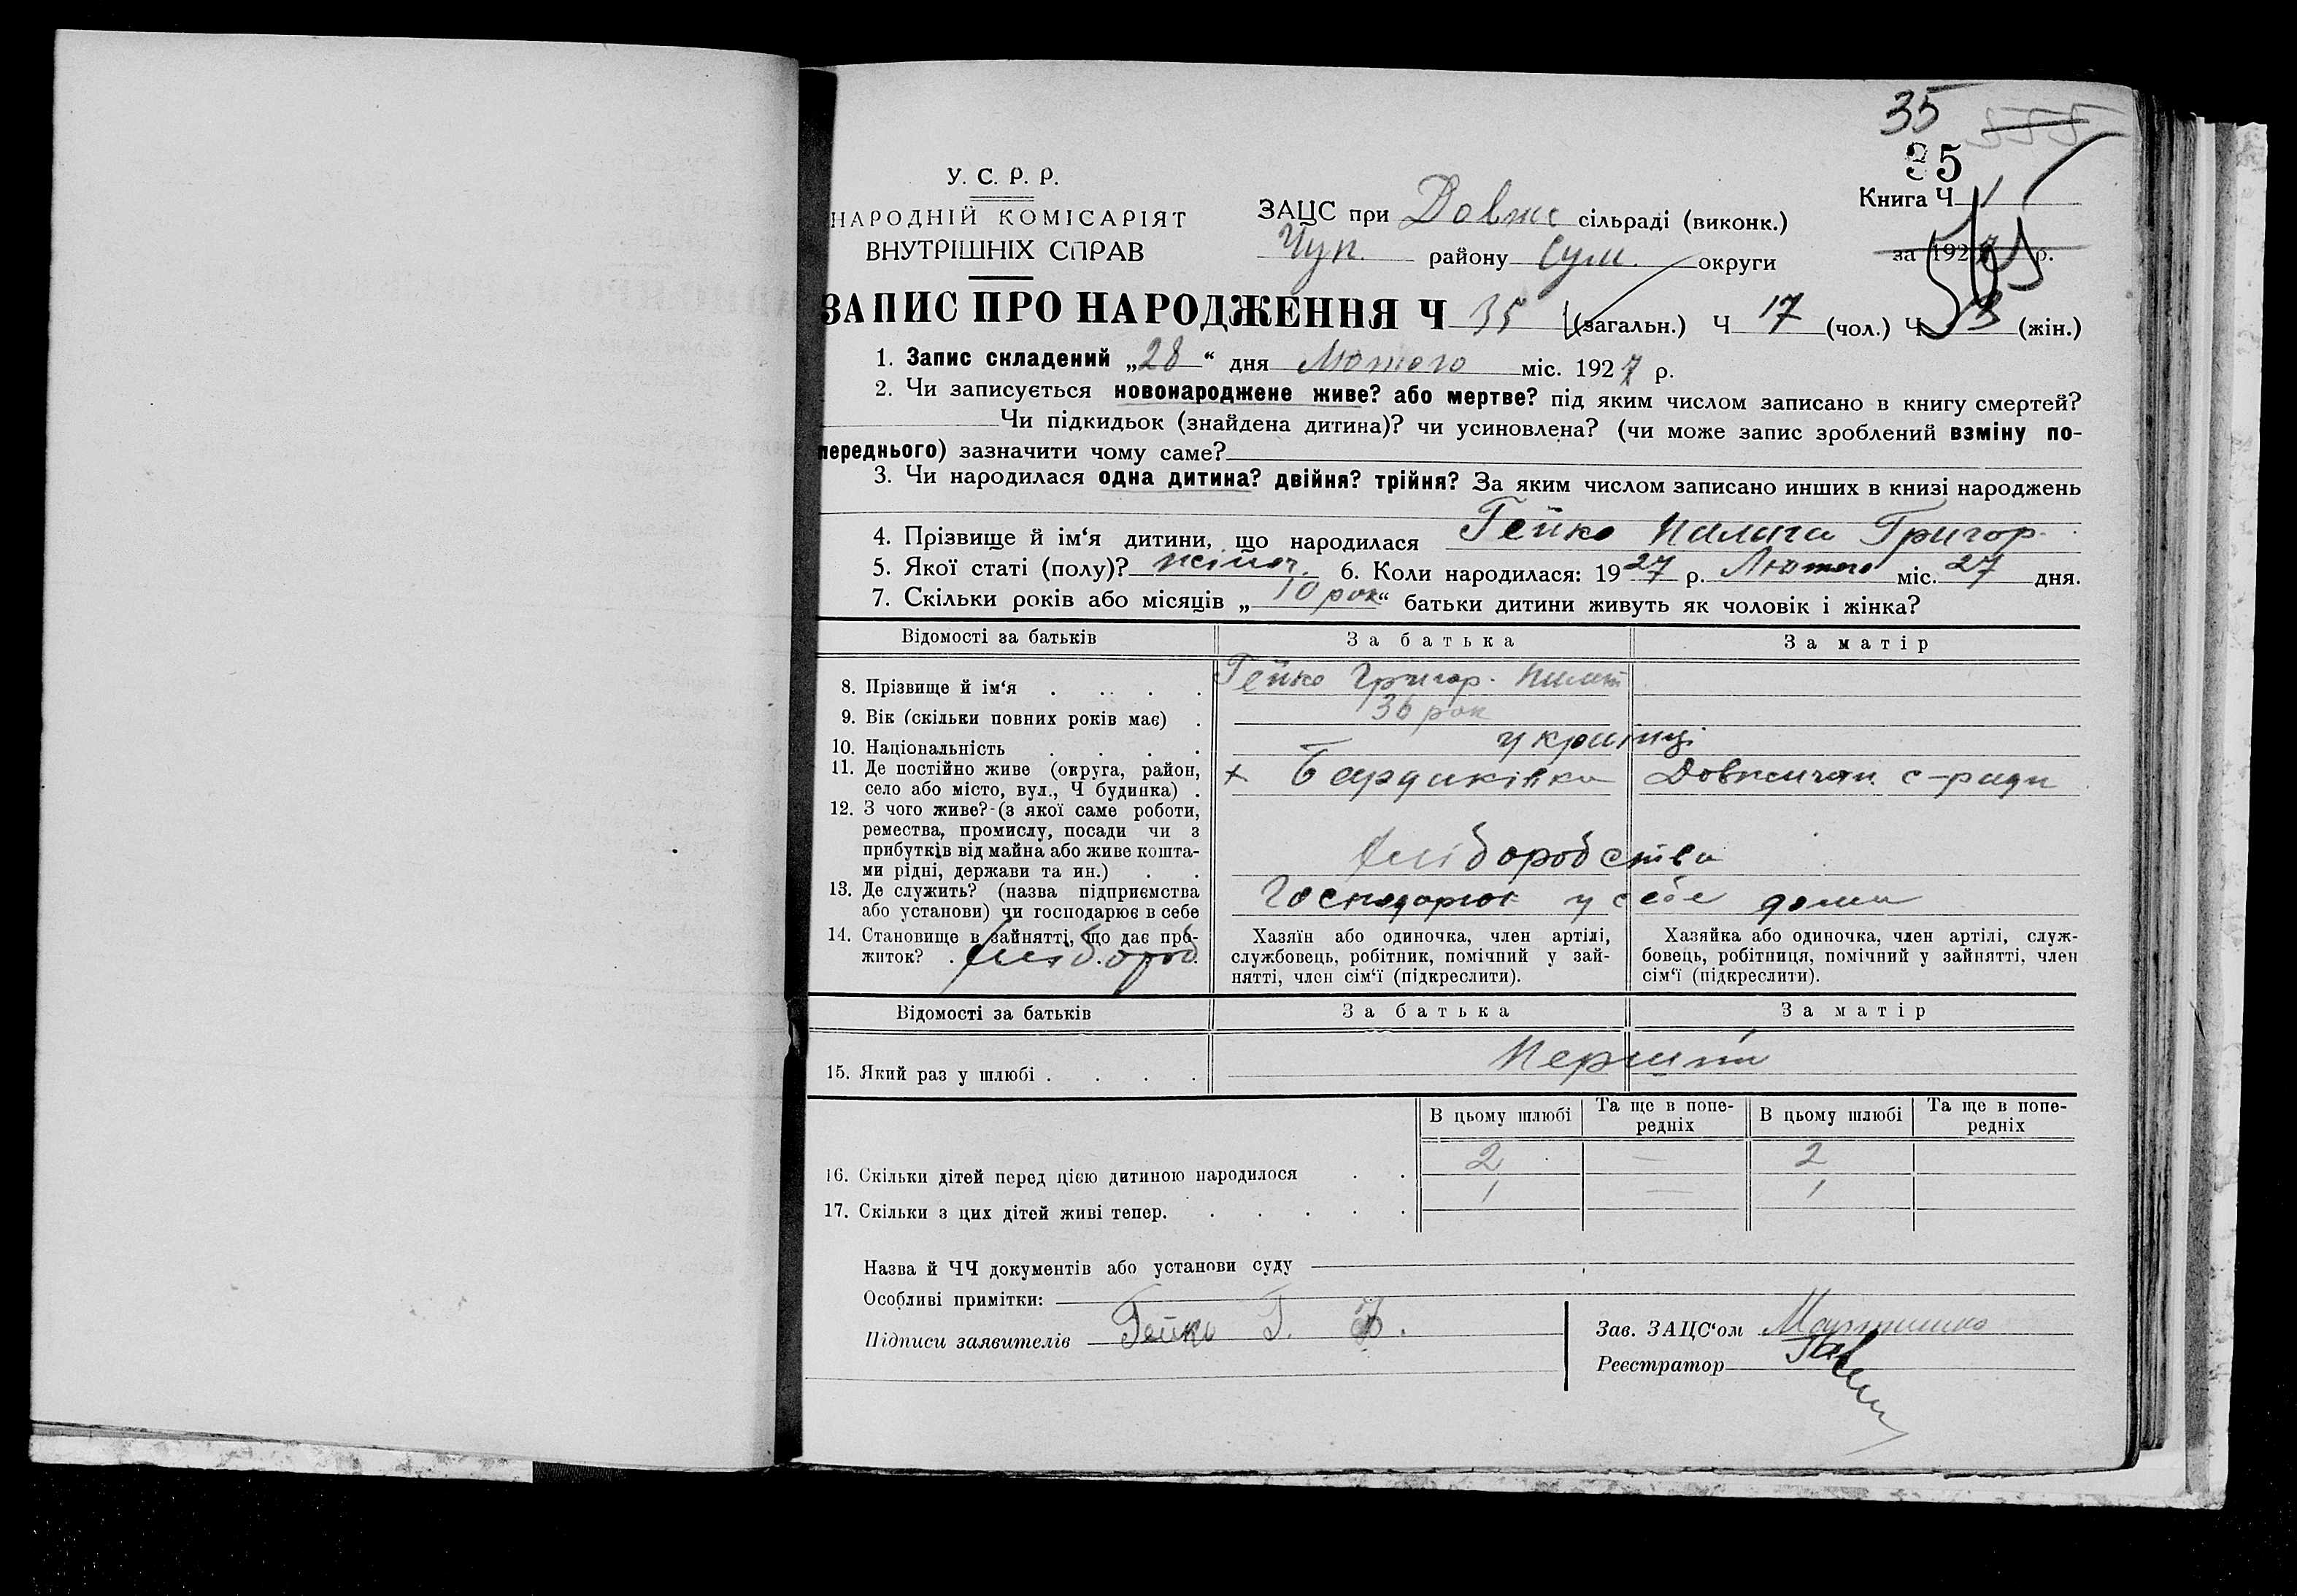 35 555
35
У. С. Р. Р.
НАРОДНІЙ КОМІСАРІЯТ
ВНУТРІШНІХ СПРАВ
ЗАЦС при Довж сільраді (виконк.)
Чуп. району Сум. округи
Книга Ч 1
за 1927 р.
ЗАПИС ПРО НАРОДЖЕННЯ Ч 35 (загальн.) Ч 17 (чол.) Ч (жін.)
1. Запис складений „28“ дня Лютого міс. 1927 р.
2. Чи записується новонароджене живе? або мертве? під яким числом записано в книгу смертей?
Чи підкидьок (знайдена дитина)? чи усиновлена? (чи може запис зроблений взміну по-
переднього) зазначити чому саме?
3. Чи народилася одна дитина? двійня? трійня? За яким числом записано инших в книзі народжень
4. Прізвище й ім‘я дитини, що народилася Гейко Палага Григор.
5. Якої статі (полу)? жіноч. 6. Коли народилася: 1927 р. Лютого міс. 27 дня.
7. Скільки років або місяців „10 рок“ батьки дитини живуть як чоловік і жінка?
Відомості за батьків За батька За матір
8. Прізвище й ім‘я Гейко Григор.
9. Вік (скільки повних років має) 36 рок
10. Національність україці
11. Де постійно живе (округа, район,
село або місто, вул., Ч будинка) х Бардаківка Довжичан. с-ради
12. З чого живе? (з якої саме роботи,
ремества, промислу, посади чи з
прибутків від майна або живе кошта-
ми рідні, держави та ин.) хліборобства
13. Де служить? (назва підприємства
або установи) чи господарює в себе Господарює у себе дома
14. Становище в зайнятті, що дає про-
житок? хлібороб
Хазяїн або одиночка, член артілі,
службовець, робітник, помічний у зай-
нятті, член сім‘ї (підкреслити).
Хазяйка або одиночка, член артілі, служ-
бовець, робітниця, помічний у зайнятті, член
сім‘ї (підкреслити).
Відомості за батьків За батька За матір
15. Який раз у шлюбі Перший
В цьому шлюбі Та ще в попе-
редніх В цьому шлюбі Та ще в попе-
редніх
16. Скільки дітей перед цією дитиною народилося 2 — 2
17. Скільки з цих дітей живі тепер. 1 — 1
Назва й ЧЧ документів або установи суду
Особливі примітки:
Підписи заявителів Гейко Г.
Зав. ЗАЦС‘ом
Реєстратор